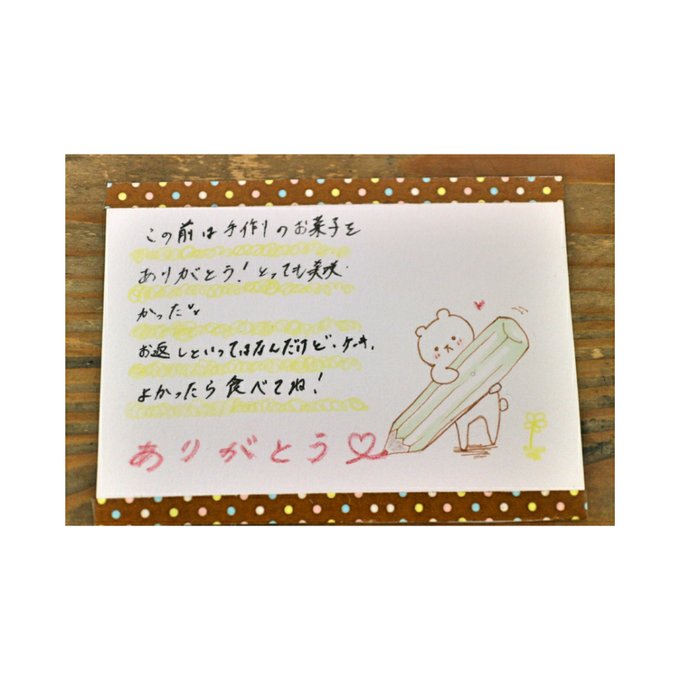 この前は手作りのお菓子を
ありがとう！とっても美味
かった
お返しといってはなんだけど、ケーキ、
よかったら食べてね！
ありがとう♡